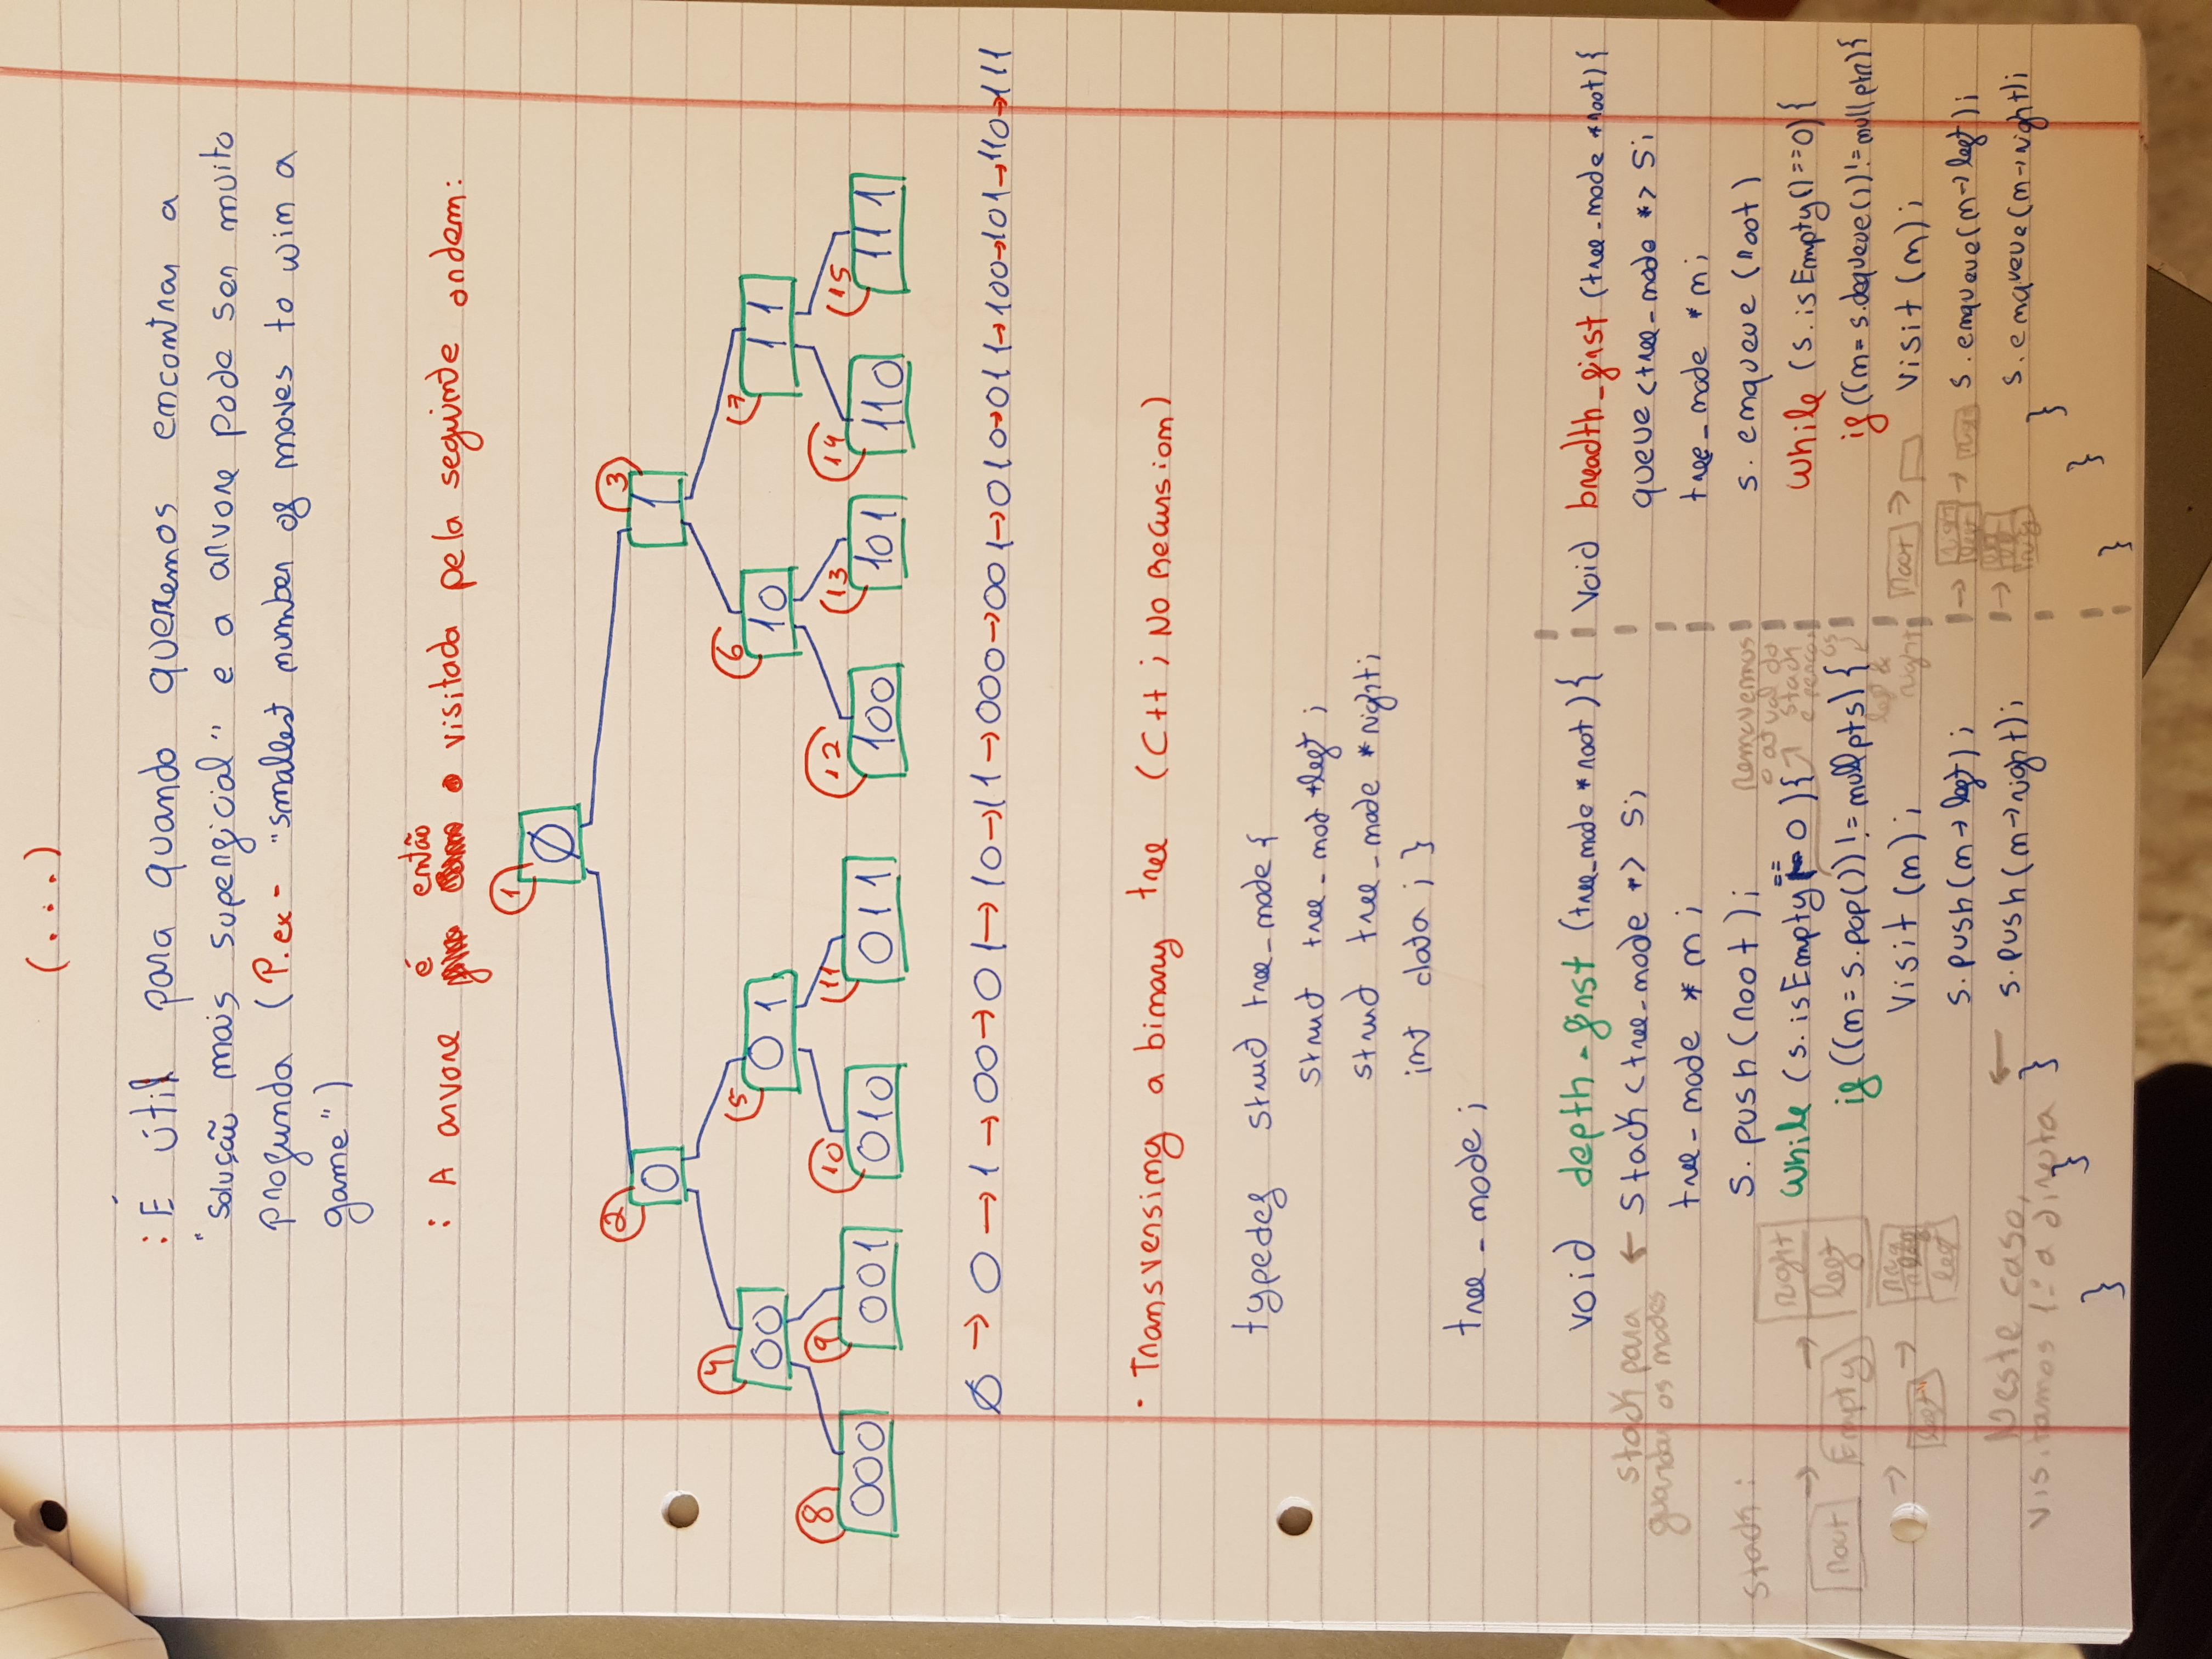 (...)
: É útil para quando queremos encontrar a
"solução mais superficial" e a arvore pode ser muito
profunda (P.ex - "smallest number of moves to win a
game")
: A arvore é então visitada pela seguinte ordem:
1
Ø
2 3
0 1
4 5 6 7
00 01 10 11
8 9 10 11 12 13 14 15
000 001 010 011 100 101 110 111
Ø → 0 → 1 → 00 → 01 → 10 → 11 → 000 → 001 → 010 → 011 → 100 → 101 → 110 → 111
· Transversing a binary tree (C++; No Recursion)
typedef struct tree_node {
struct tree_nod *left ;
struct tree_node *right;
int data ; }
tree_node ;
void depth-first (tree_node *root){
stack para
guardar os nodes
← stack <tree_node *> s;
tree_node * n ;
s.push(root);
while (s.isEmpty == 0){
Removemos
o atual do
stack
if ((n = s.pop()) != nullpts) {
left &
right
Visit (n) ;
s.push(n→left) ;
s.push(n→right);
}
}
}
Stack :
root → Empty → right
left
→ →
left
Neste caso,
Visitamos 1º a direita
←
void breadth_first (tree_node *root){
queue <tree_node *> s;
tree_node * n;
s. enqueue (root)
while (s.isEmpty()==0){
if((n= s.dequeue())!= nullptr){
root →
visit (n) ;
right
left → right
s. enqueue(n→left);
→
s. enqueue(n→right);
}
}
}